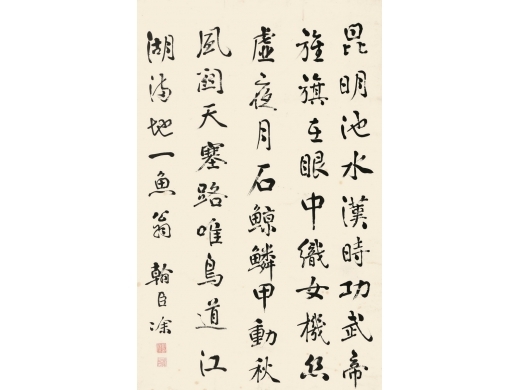 昆明池水漢時功武帝
旌旗在眼中織女機絲
虛夜月石鯨鱗甲動秋
風關天塞路唯鳥道江
湖滿地一魚翁 翰臣涂